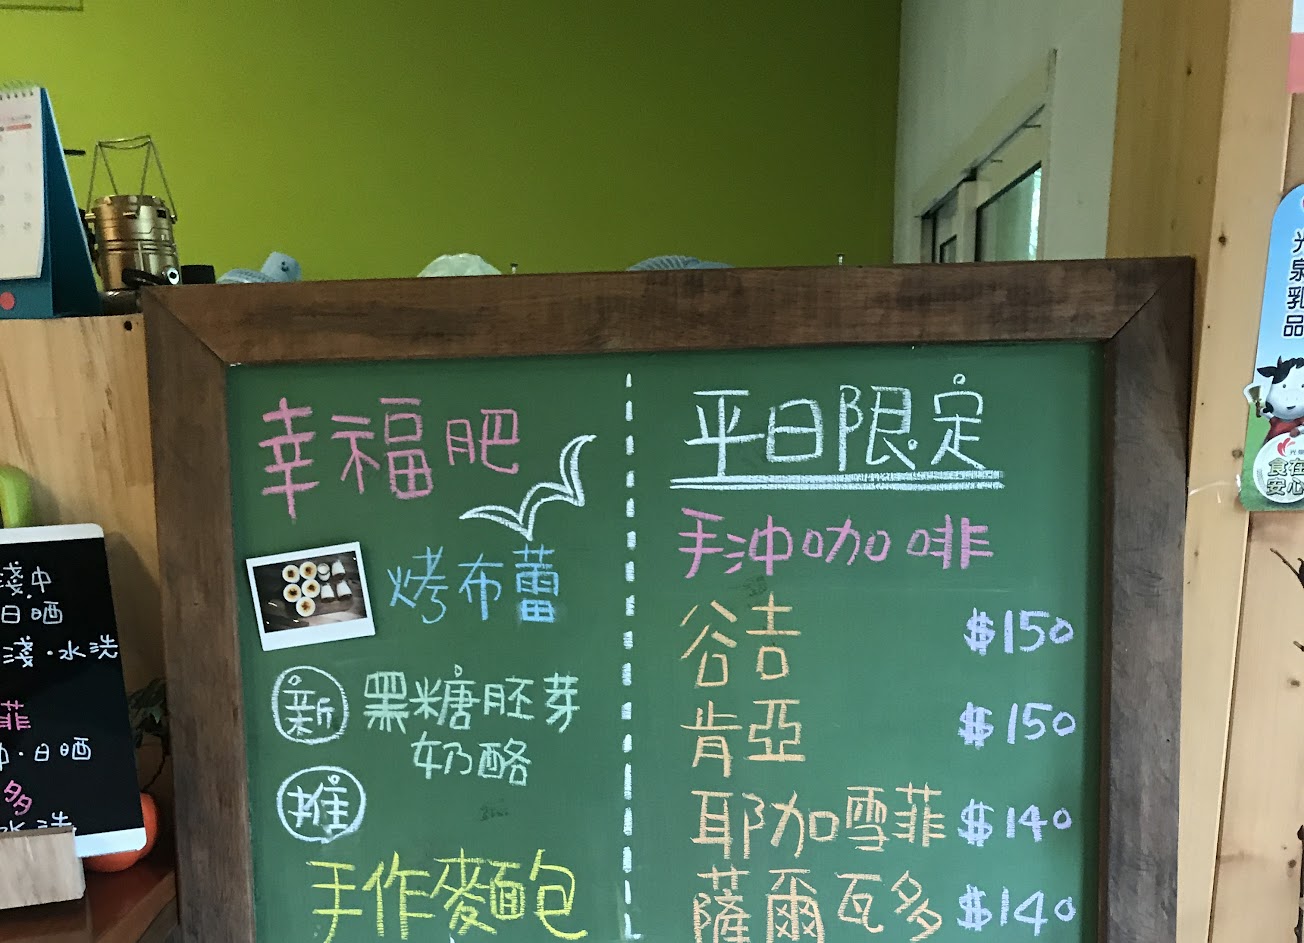 幸福肥
烤布蕾
新 黑糖胚芽
奶酪
推
手作麥麵包
平日限定
手沖咖啡
谷吉 $150
肯亞 $150
耶加雪菲 $140
薩爾瓦多 $140
淺.中
日晒
淺.水洗
菲
中.日晒
多
水洗
光泉乳品
食在
安心